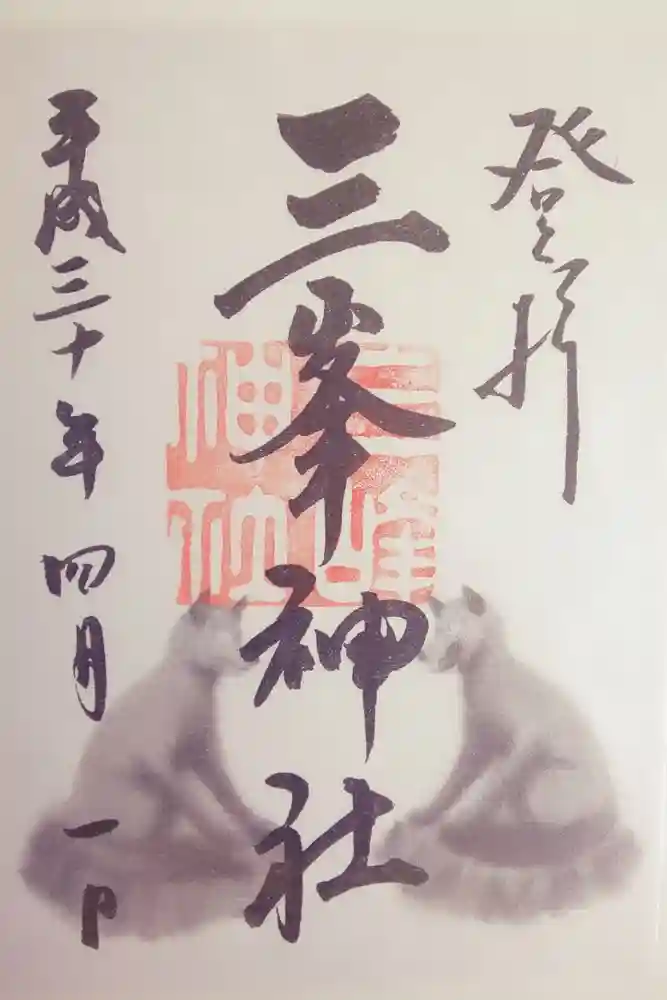 登拝
三峯神社
三峰神社
平成三十年四月一日